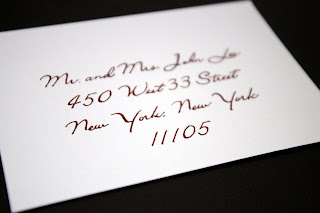 Mr. and Mrs. John Lee
450 West 33 Street
New York, New York
11105